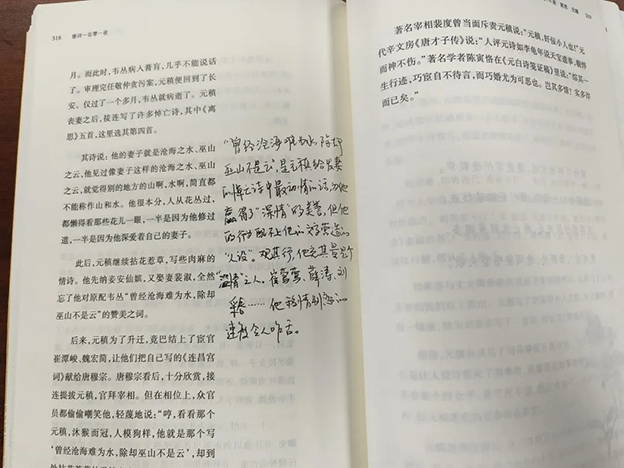 316 唐诗一云零一夜
月。而此时,韦丛病入膏肓,几乎不能说话
了。审理完任敬仲贪污案,元稹便回到了长
安。仅过了一个多月,韦丛就病逝了。元稹
丧妻之后,接连写了许多悼亡诗,其中《离
思》五首,这里选其第四首。
其诗说:他的妻子就是沧海之水、巫山
之云,他见过像妻子这样的沧海之水、巫山
之云,就觉得别的地方的山啊,水啊,简直都
不能称作山和水。他很本分,人从花丛过,
都懒得看那些花儿一眼,一半是因为他修过
道,一半是因为他深爱着自己的妻子。
此后,元稹继续拈花惹草,写些肉麻的
情诗。他先纳妾安仙嫔,又娶妻裴淑,全然
忘了他对原配韦丛“曾经沧海难为水,除却
巫山不是云”的赞美之词。
后来,元稹为了升迁,竟巴结上了宦官
崔潭峻、魏宏简,让他们把自己写的《连昌宫
词》献给唐穆宗。唐穆宗看后,十分欣赏,接
连提拔元稹,官拜宰相。但在相位上,众官
员都偷偷嘲笑他,轻蔑地说:“哼,看看那个
元稹,沐猴而冠,人模狗样,他就是那个写
‘曾经沧海难为水,除却巫山不是云’,却到
“曾经沧海难为水,除却
巫山不是云”,是元稹给发妻
的悼亡诗中最动情的话,为他
赢得了“深情”的美誉,但他
的行为配不上他的文字营造的
“人设”。观其行,他尤其是是个
“滥情”之人。崔莺莺、薛涛、刘
采春……他移情别恋的
速度令人咋舌。
著名宰相裴度曾当面斥责元稹说:“元稹,奸佞小人也!”元
代辛文房《唐才子传》说:“人评元诗如李龟年说天宝遗事,貌悴
而神不伤。”著名学者陈寅恪在《元白诗笺证稿》里说:“综其一
生行迹,巧宦自不待言,而巧婚尤为可恶也。岂其多情?实多诈
而已矣。”